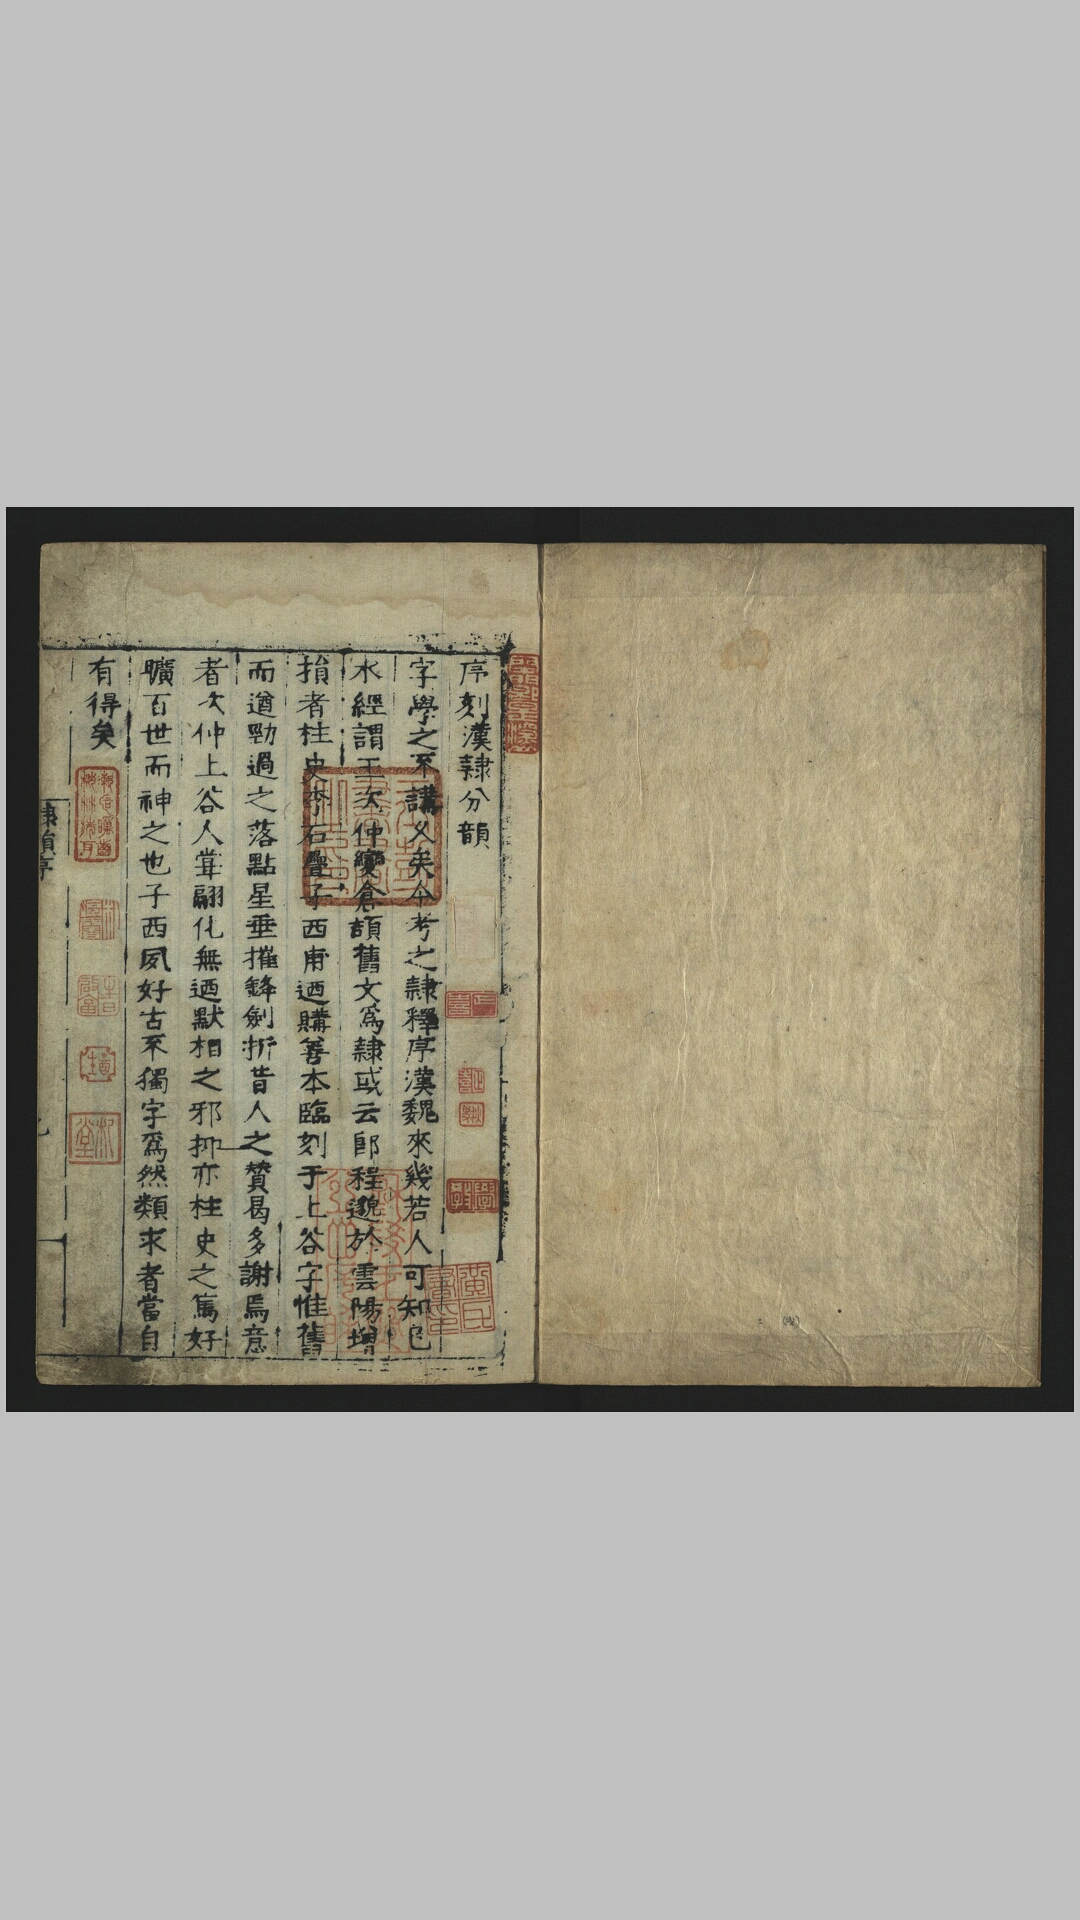 序刻漢隸分韻
字學之不講久矣今考之隸釋序漢魏來幾若人可知已
水經謂王次仲變倉頡舊文爲隸或云郎程邈於雲陽增
損者柱史李石疊子西甫迺購善本臨刻于上谷字惟舊
而遒勁過之落點星垂摧鋒劍折昔人之贊曷多謝焉意
者次仲上谷人嘗翮化無迺默相之邪抑亦柱史之篤好
曠百世而神之也子西夙好古不獨字爲然類求者當自
有得矣